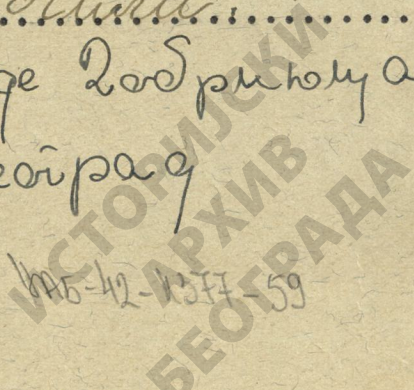 Добрињца
еоград
ИАБ-42-К377-59
ИСТОРИЈСКИ
АРХИВ
БЕОГРАДА